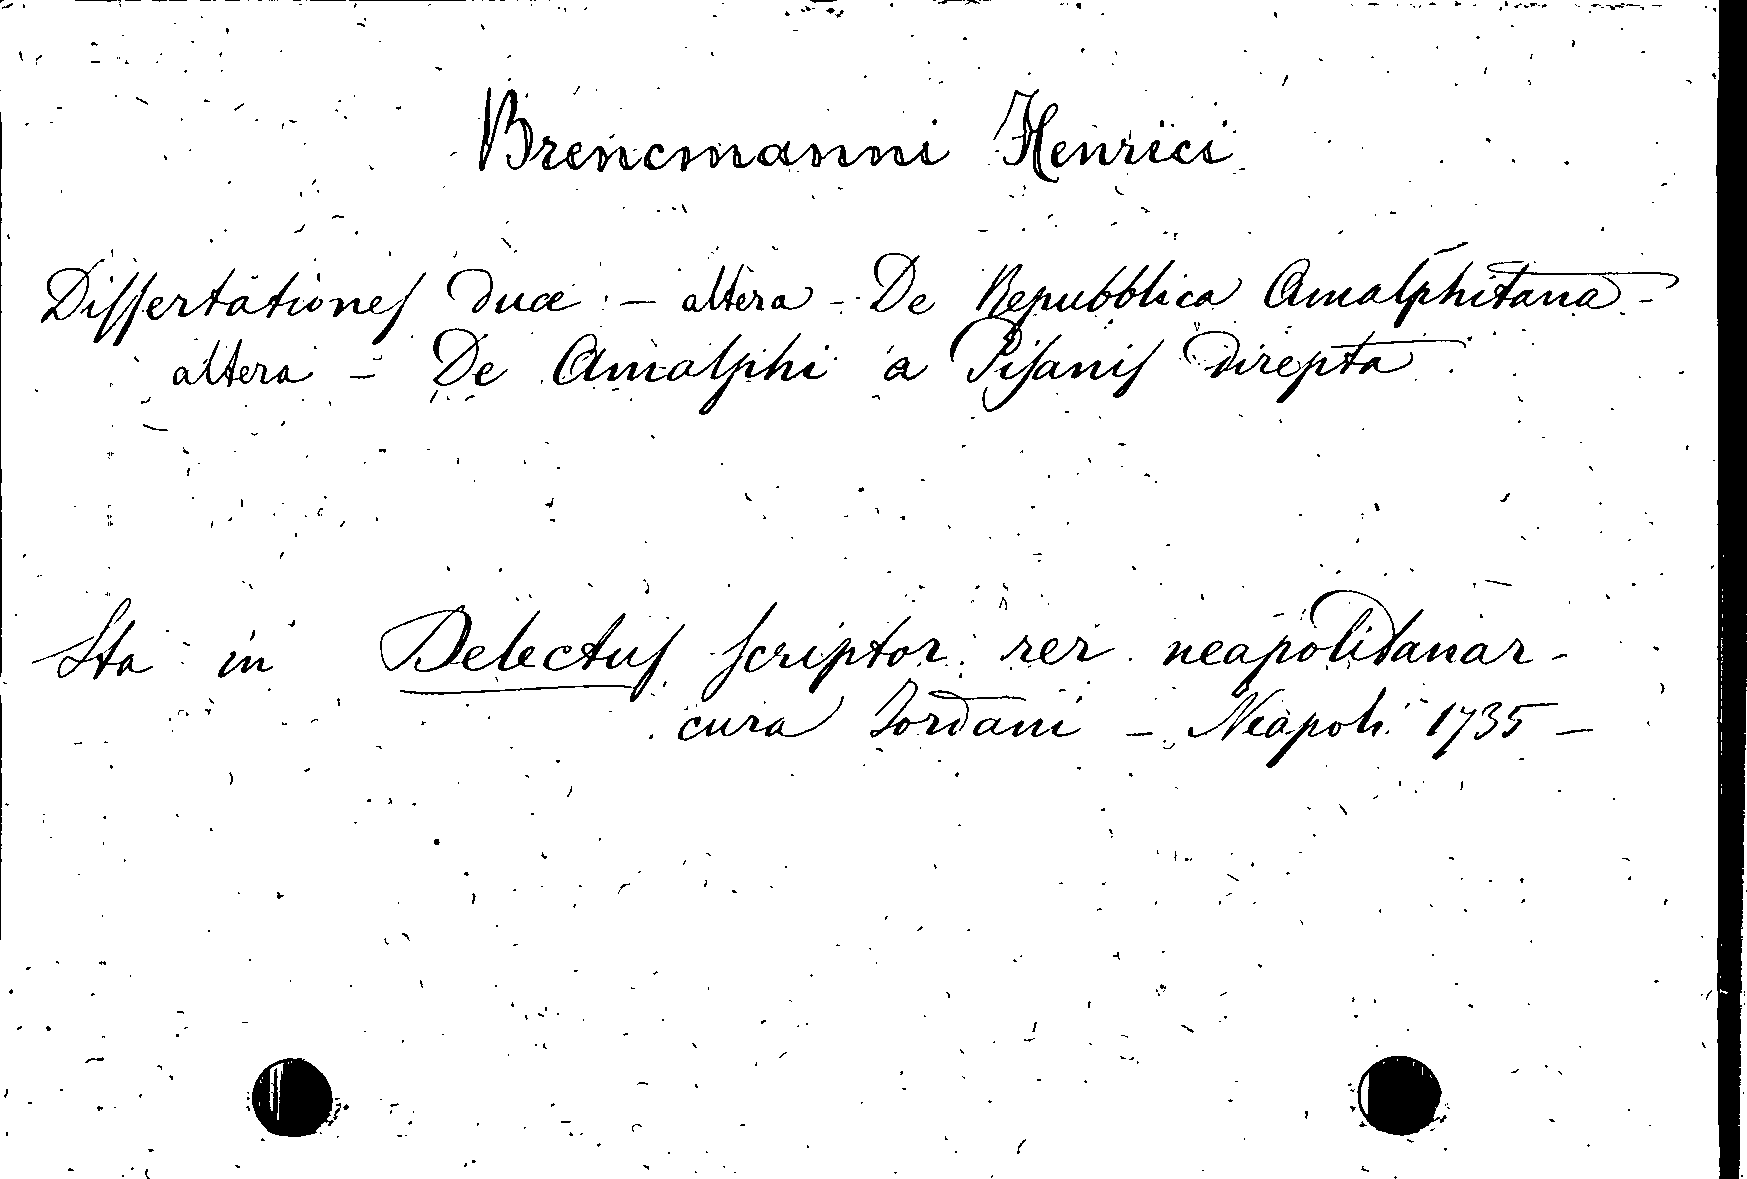 Brencmanni Henrici
Dissertationes duæ - altera - De Repubblica Amalphitana -
altera - De Amalphi a Pisanis direpta
Sta in Delectus scriptor. rer. neapolitanar -
cura Jordani - Neapoli 1735 -